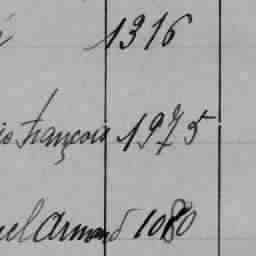 1316
François 1975
Armand 1080